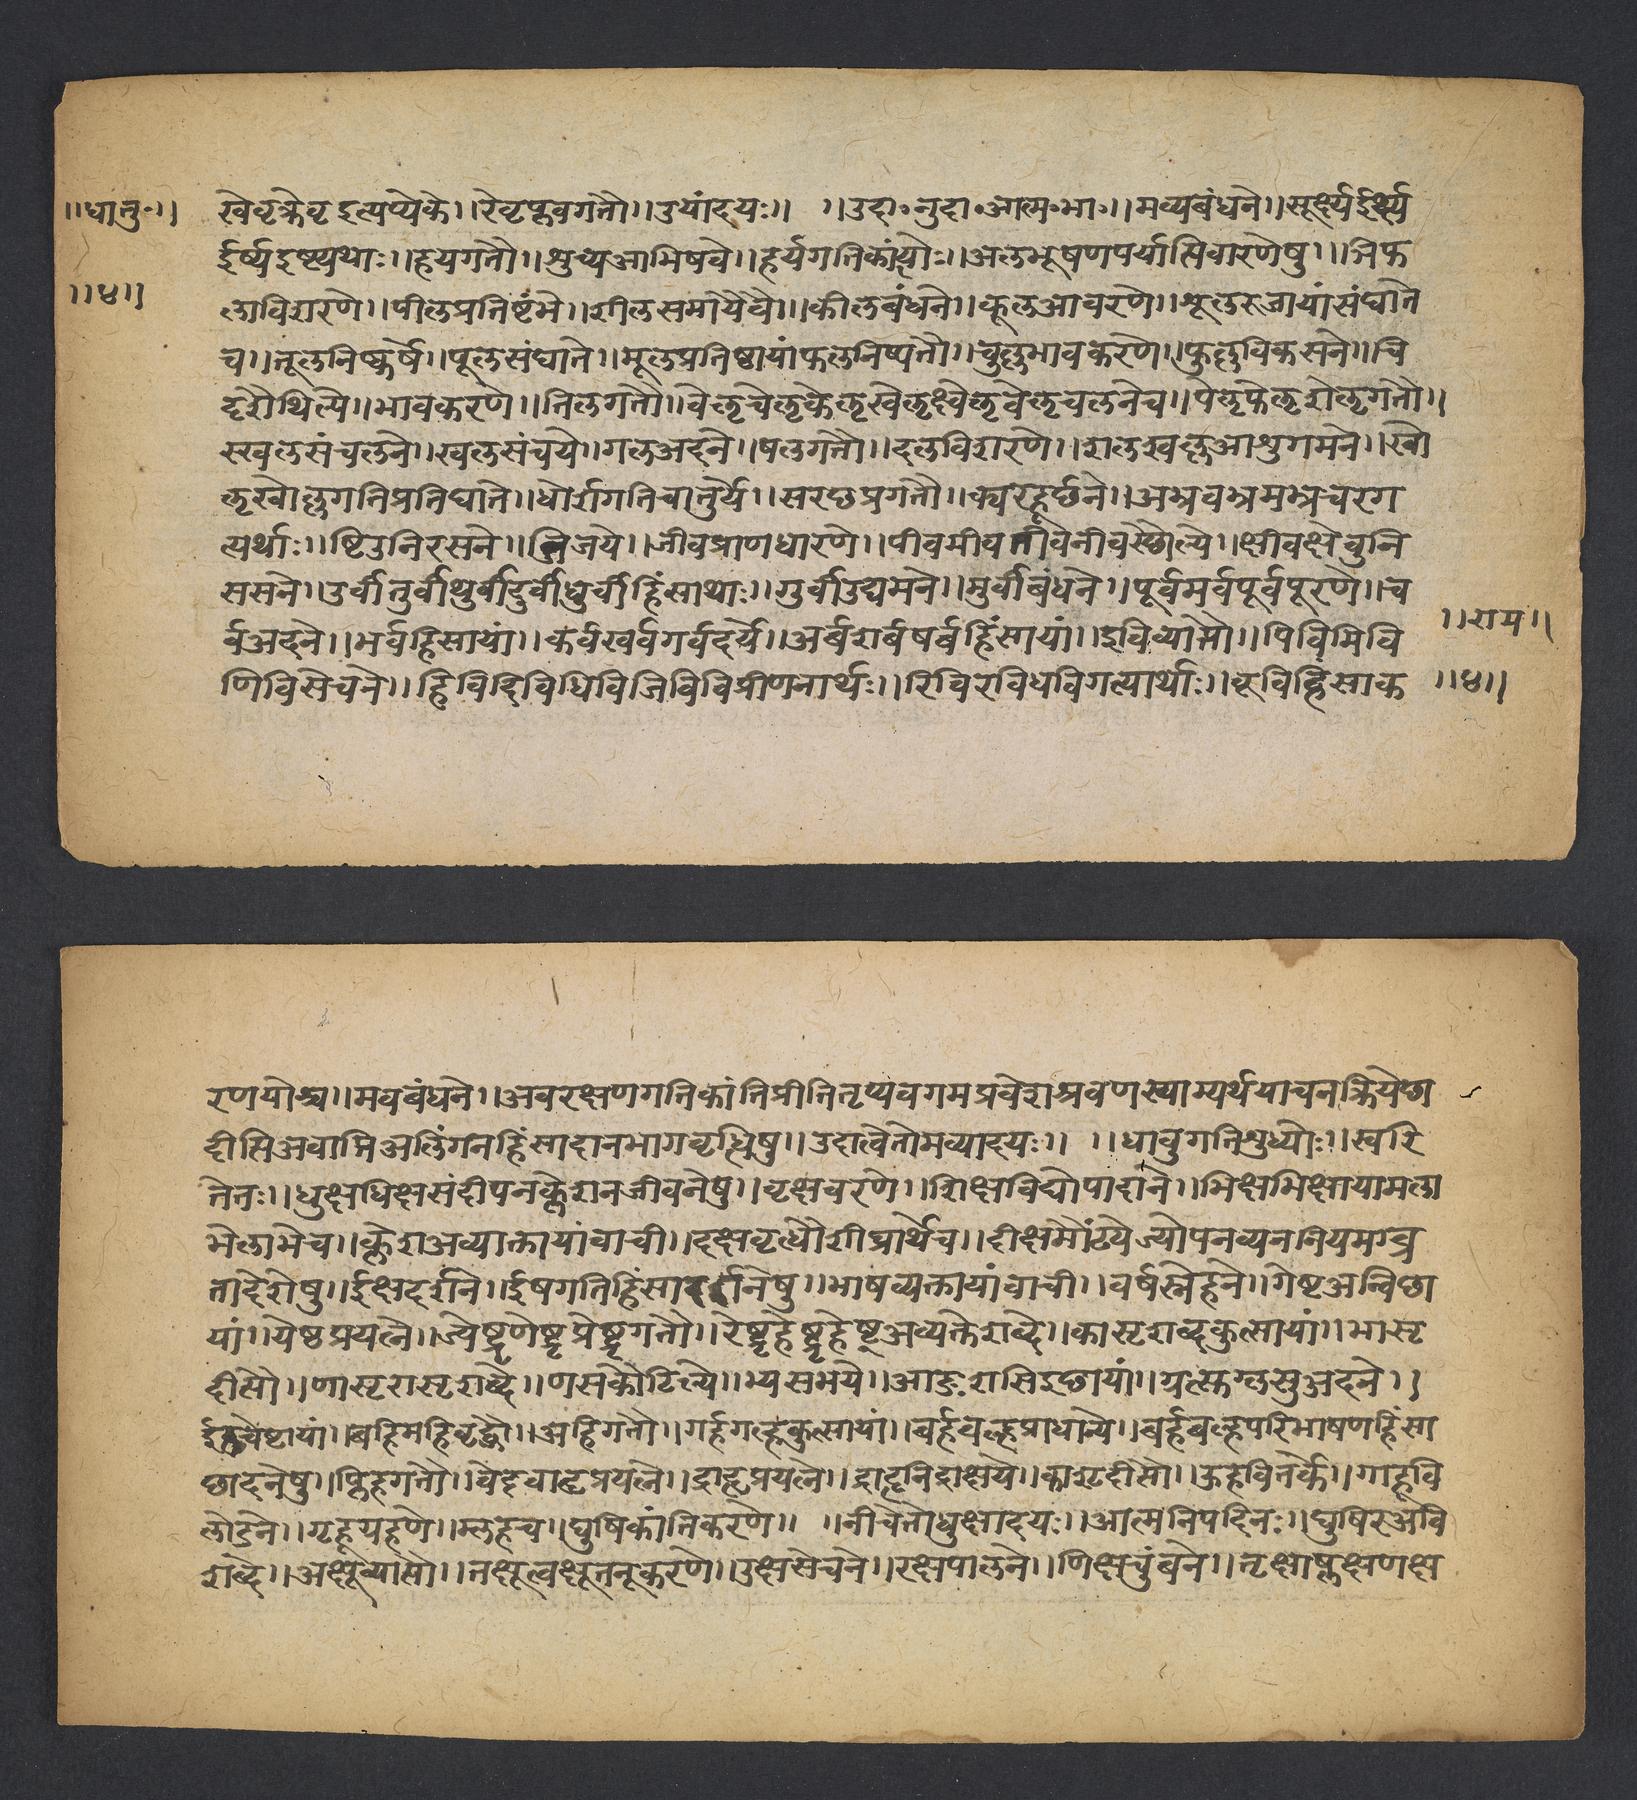 ॥धातु०॥
॥४॥
खेवृक्लेवृइत्यप्येके॥रेवृप्लवगतौ॥उयांदयः॥ ॥उदा०नुदा०आत्म०भा०॥मव्यबंधने॥सूर्क्ष्यईर्क्ष्य
ईर्ष्यइर्ष्ययथाः॥हयगतौ॥शुच्यआभिषवे॥हर्यगतिकांत्योः॥अलभूषणपर्याप्तिवारणेषु॥ञिफ
लाविशरणे॥पीलप्रतिष्टंभे॥शीलसमाधैवै॥कीलबंधने॥कूलआवरणे॥शूलरुजायांसंघाते
च॥तूलनिष्कर्षे॥पूलसंघाते॥मूलप्रतिष्ठायांफलनिष्पतौ॥चुल्लभावकरणे॥फुल्लविकसने॥चि
दृशैथिल्ये॥भावकरणे॥तिलगतौ॥वेलृचेलृकेलृखेलृक्ष्वेलृवेलृचलनेच॥पेलृफेलृशेलृगतौ॥
स्खलसंचलने॥खलसंचये॥गलअदने॥षलगतौ॥दलविशरणे॥शलखल्लआशुगमने॥खो
लृखोल्लगतिप्रतिघाते॥धोर्शगतिचातुर्ये॥सरछप्रगतौ॥क्मरहूर्छने॥अभ्रवभ्रमभ्रचरग
त्यर्थाः॥ष्टिउनिरसने॥जिजये॥जीवप्राणधारणे॥पीवमीवतीवनीवस्छौल्ये॥क्षीवक्षेवुनि
ससने॥उर्वीतुर्वीथुर्वीदुर्वीधुर्वीहिंसाथाः॥गुर्वीउद्यमने॥मुर्वीबंधने॥पूर्वमर्वपूर्वपूरणे॥च
र्वअदने॥भर्वहिसायां॥कर्वखर्वगर्वदर्ये॥अर्बशर्बषर्बहिंसायां॥इविव्याप्तौ॥पिविमिवि
णिविसेचने॥हिविदिविधिविजिविविप्रीणनार्थः॥रिविरविधविगत्यार्थाः॥कृविहिंसाक
॥राम॥
॥४॥
रणयोश्च॥मवबंधने॥अवरक्षणगतिकांतिप्रीतितृप्यवगमप्रवेशश्रवणस्वाम्यर्थयाचनक्रियेछा
दीप्तिअवाप्तिअलिंगनहिंसादानभागवृध्षिषु॥उदात्वेतोमव्यादयः॥ ॥धावुगतिशुध्योः॥स्वरि
तेतः॥धुक्षधिक्षसंदीपनक्लेशनजीवनेषु॥वृक्षवरणे॥शिक्षविद्योपादाने॥भिक्षभिक्षायामला
भेलाभेच॥क्लेशअव्याक्तायांवाची॥दक्षवृत्धौशीघ्रार्थेच॥दीक्षमौंट्येज्योपनव्यननियमव्र
तादेशेषु॥ईक्षदर्शने॥ईषगतिहिंसादर्शनेषु॥भाषव्यक्तायांवाची॥वर्षस्नेहने॥गेष्टअन्विछा
यां॥येष्ठप्रयत्ने॥ज्येष्टृणेष्टृप्रेष्टृगतौ॥रेष्टृहेष्टृहेष्टृअव्यक्तेशब्दे॥कासृशब्दकुत्सायां॥भासृ
दीप्तौ॥णासृरासृशब्दे॥णसकौटिल्ये॥भ्यसभये॥आङःशसिइछायां॥ग्रस्तग्लसुअदने॥
ईहचेष्टायां॥बहिमहिवृद्धौ॥अहिगतौ॥गर्हगल्हकुत्सायां॥बर्हबल्हप्राधान्ये॥बर्हबल्हपरिभाषणहिंसा
छादनेषु॥प्लिहगतौ॥वेदृवाहृप्रयत्ने॥द्राहृप्रयत्ने॥द्राहृनिद्राक्षये॥काशृदीप्तौ॥ऊहवितर्के॥गाहूवि
लोडने॥गृहूयहणे॥म्लहच॥घुषिकांतिकरणे॥ ॥नीचेतोधुक्षादयः॥आत्मनिपदिनः॥घुषिरअवि
शब्दे॥अक्षूव्याप्तौ॥तक्षूत्वक्षूतनूकरणे॥उक्षसेचने॥रक्षपालने॥णिक्षचुंबने॥तृक्षाष्लक्षणक्ष